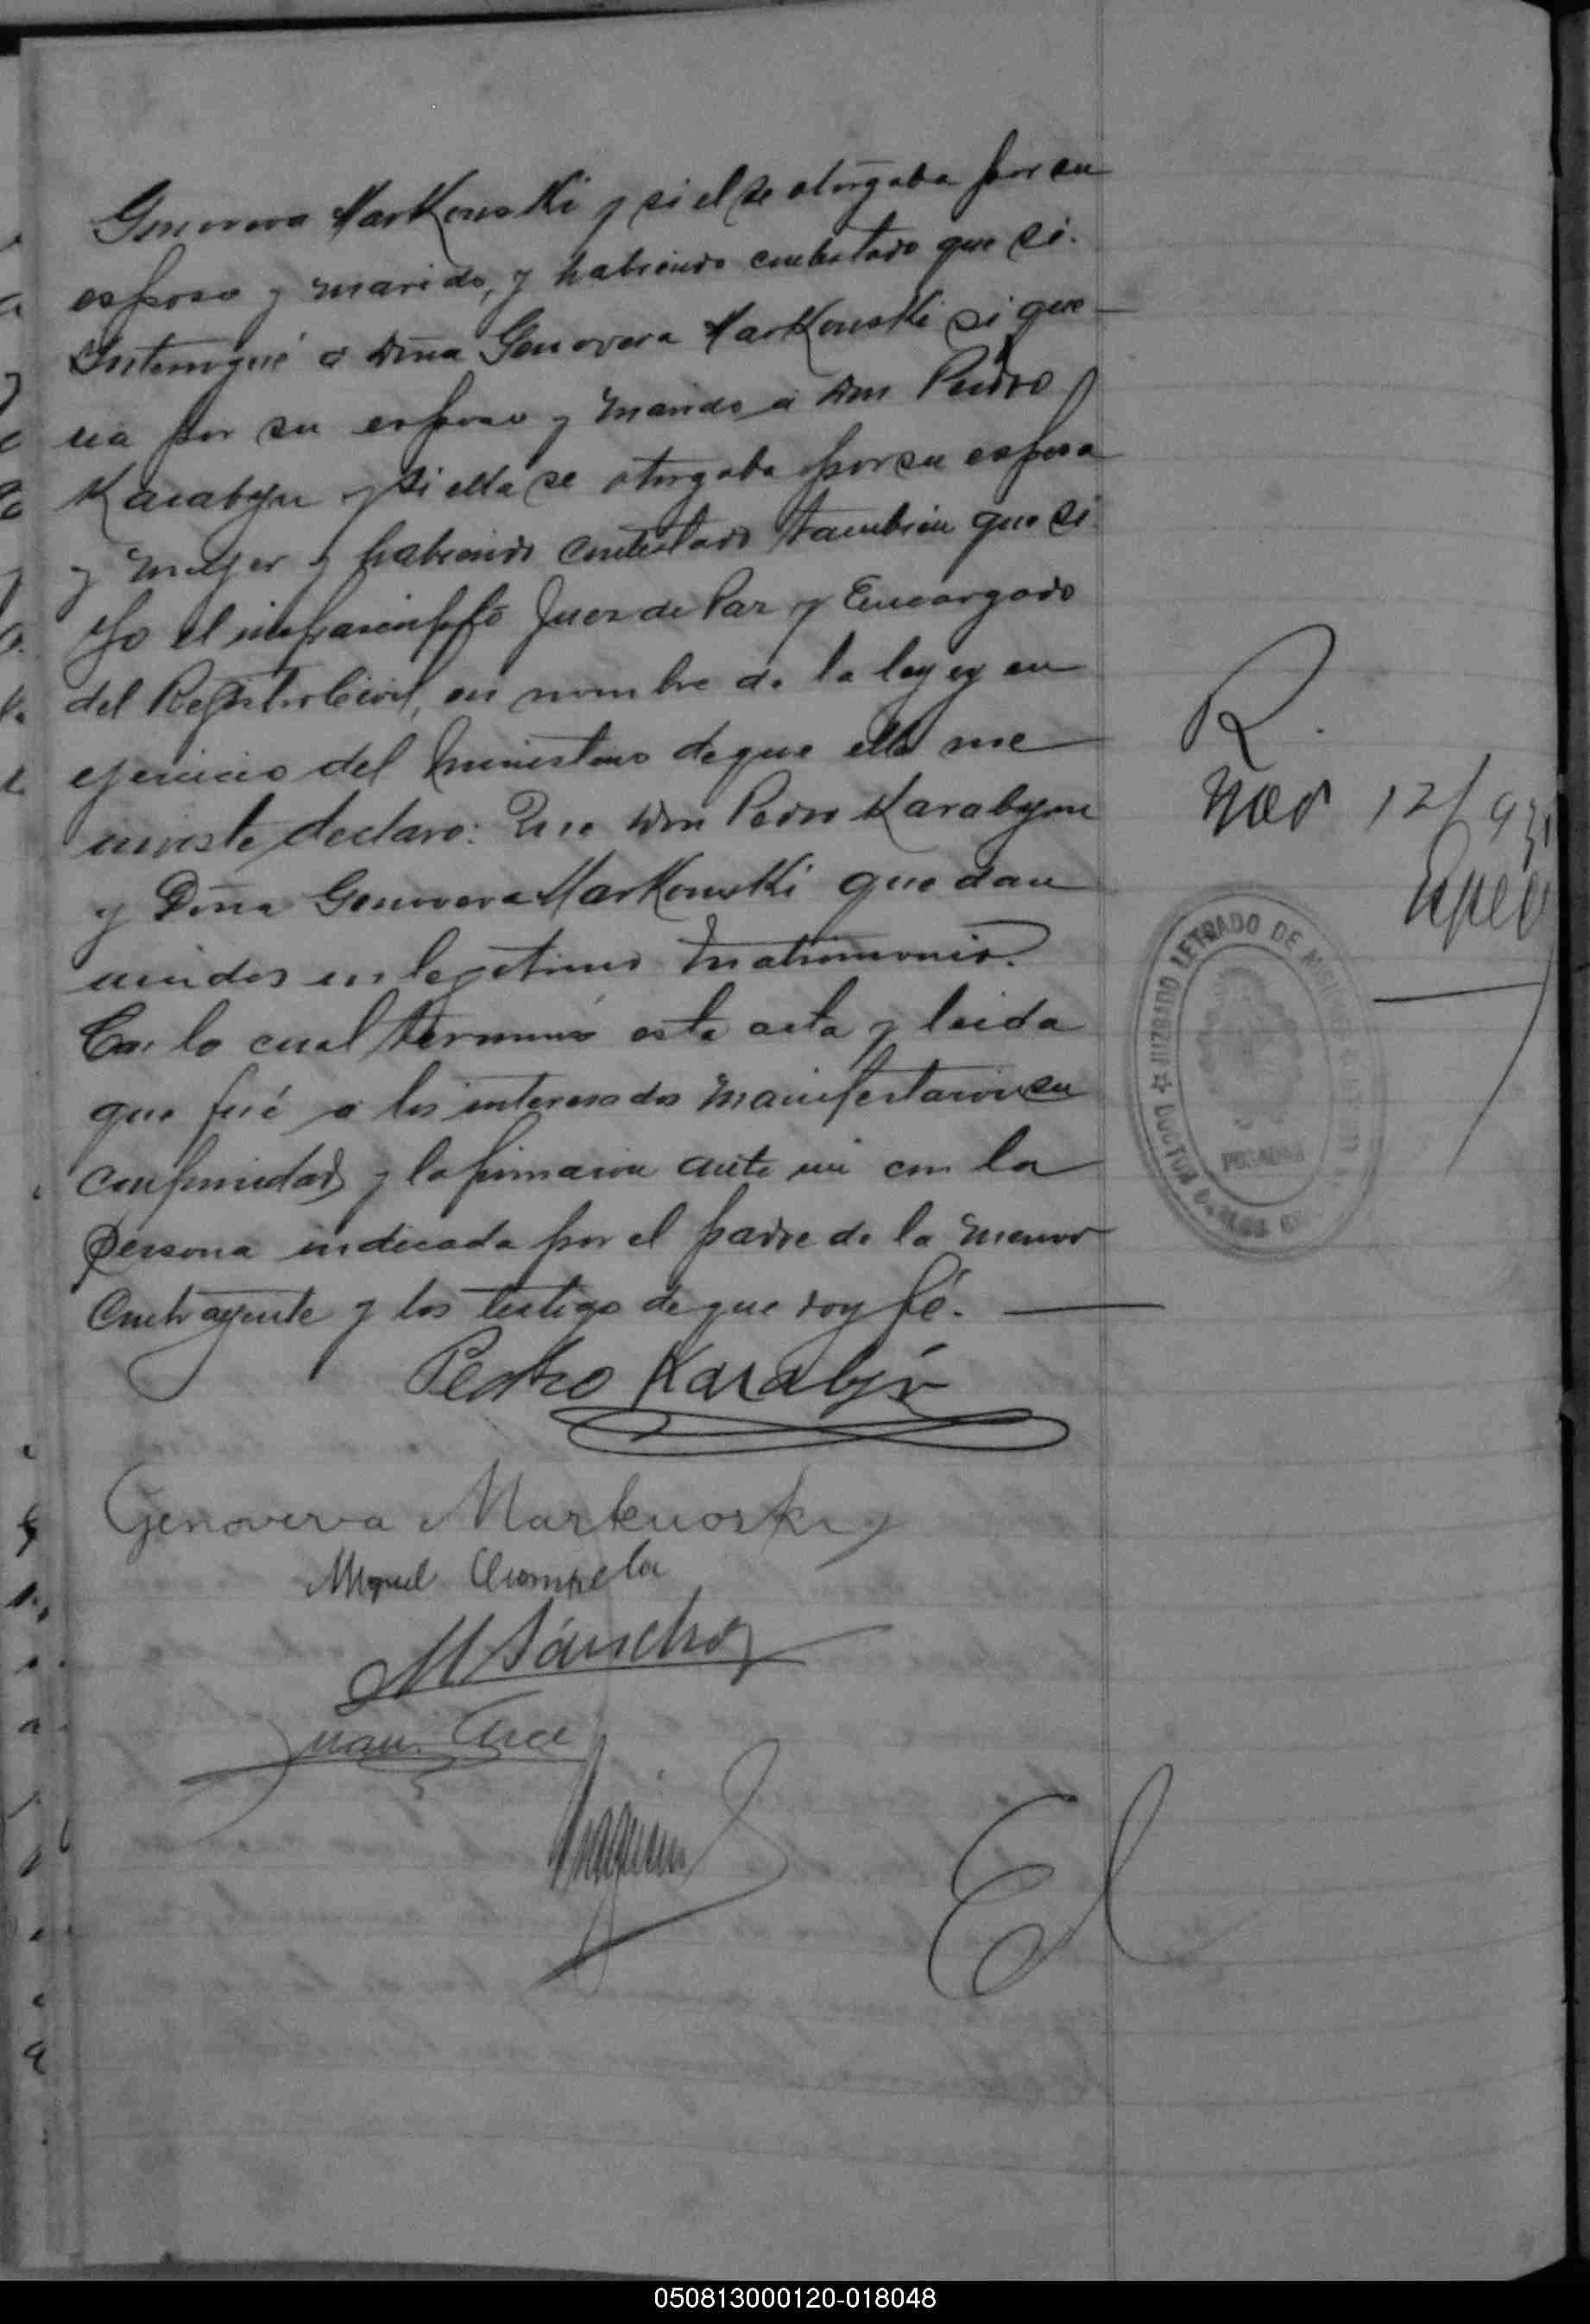 Genoveva Markouski y si el se otorgaba por su
esposo y marido, y habiendo contestado que si.
Interrogué a doña Genoveva Markouski si que-
ria por su esposo y marido a don Pedro
Karabyn y si ella se otorgaba por su esposa
y mujer y habiendo contestado tambien que si.
Yo el infrascripto Juez de Paz y Encargado
del Registro Civil, en nombre de la ley y en
ejercicio del ministerio de que ella me
inviste declaro: Que don Pedro Karabyn
y Doña Genoveva Markouski quedan
unidos en legitimo matrimonio.
Con lo cual terminó esta acta y leida
que fué a los interesados manifestaron su
conformidad y la firmaron ante mi con la
persona indicada por el padre de la menor
contrayente y los testigo de que doy fé.
Pedro Karabyn
Genoveva Markuoski
Miguel
M Sánchez
Juan Arce
R.
12/93
JUZGADO LETRADO DE MISIONES
DOCTOR
POSADAS
050813000120-018048